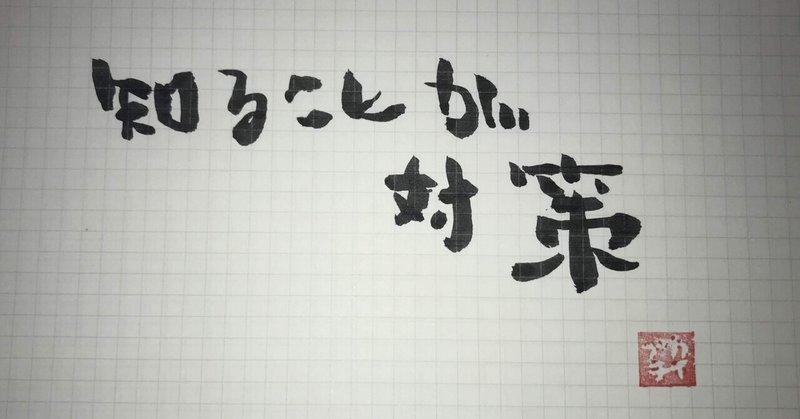 知ることが
対策